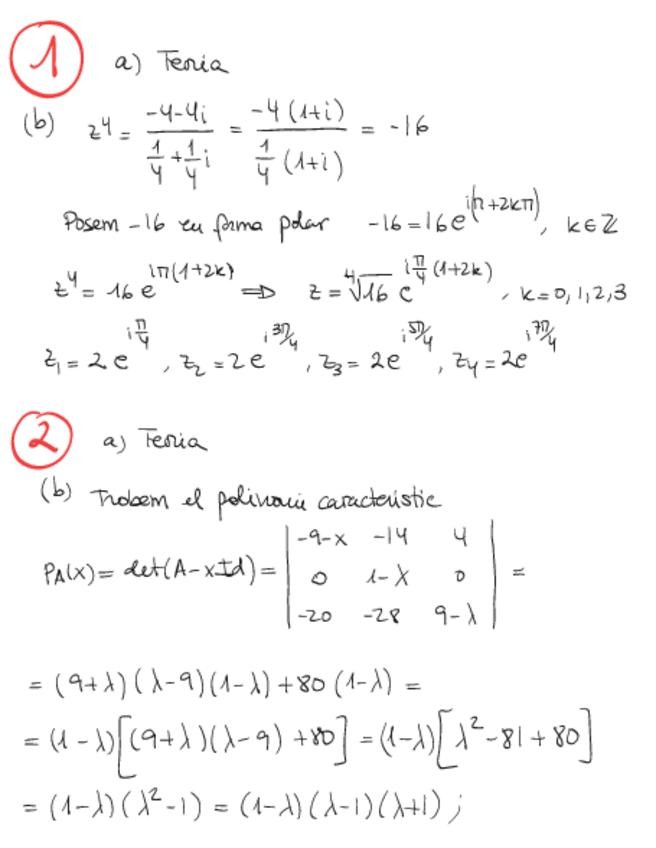 1 a) Teoria
(b) z⁴ = (-4-4i)/(1/4 + 1/4 i) = (-4(1+i))/(1/4 (1+i)) = -16
Posem -16 en forma polar -16 = 16e^{i(π+2kπ)}, k∈ℤ
z⁴ = 16 e^{iπ(1+2k)} ⟹ z = ⁴√16 e^{i π/4 (1+2k)}, k=0,1,2,3
z₁ = 2e^{i π/4}, z₂ = 2e^{i 3π/4}, z₃ = 2e^{i 5π/4}, z₄ = 2e^{i 7π/4}
2 a) Teoria
(b) Trobem el polinomi característic
P_A(x) = det(A-xId) = | -9-x -14 4 |
| 0 1-λ 0 | =
| -20 -28 9-λ |
= (9+λ)(λ-9)(1-λ) + 80(1-λ) =
= (1-λ)[(9+λ)(λ-9) + 80] = (1-λ)[λ² - 81 + 80]
= (1-λ)(λ²-1) = (1-λ)(λ-1)(λ+1) ;